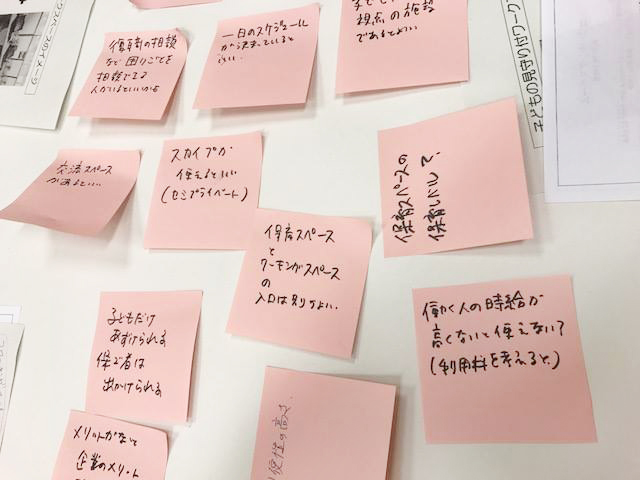 など困りごとを
相談できる
一日のスケジュール
が決まっていると
視点の施設
であるとよい
子どもの見守り付ワーク
交流スペース
があるといい
スカイプが
使えるといい
(セミプライベート)
保育スペースの
保育レベルで、
保育スペース
と
ワーキングスペース
の
入口は別りがよい.
働く人の時給が
高くないと使えない?
(利用料を考えると)
子どもだけ
あずけられる
保ご者は
出かけられる
メリットがないと
企業のメリット
便性の高さ